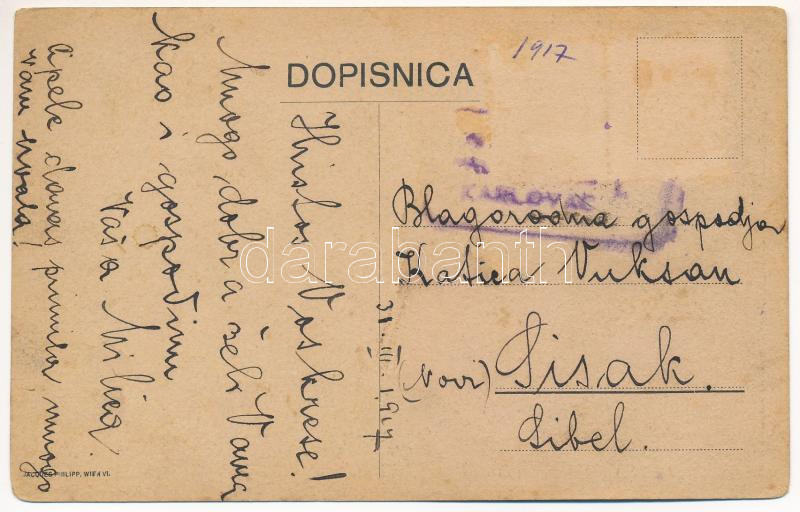 1917
DOPISNICA
KARLOVAC
Blagorodna gospodja
Katica Vuksan
(Novi) Sisak.
Sibel.
31. III. 1917
Hristos Voskrese!
Mnogo dobra želi Vama
kao i gospođinu
Vaša Milica
Apele danas primila mnogo
vam hvala!
JACQUES PHILIPP, WIEN VI.
darabanth